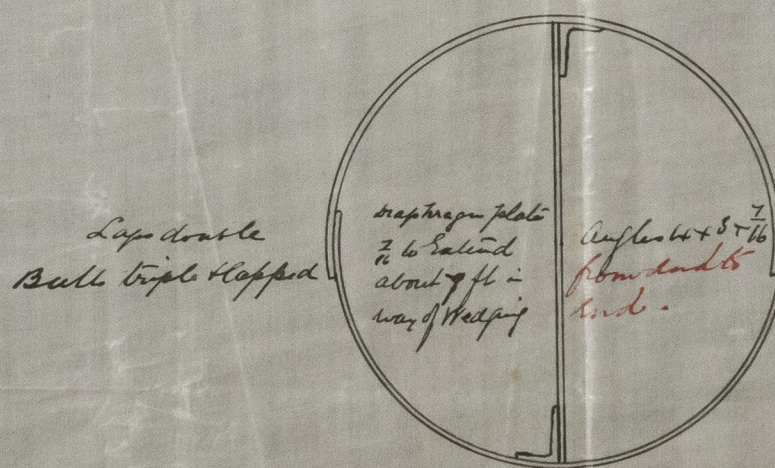 Laps double
Butts triple & lapped
Diaphragm plate
7/16 to Extend
about 7 ft in
way of Wedging
Angles 4 x 3 x 7/16
from end to
end.